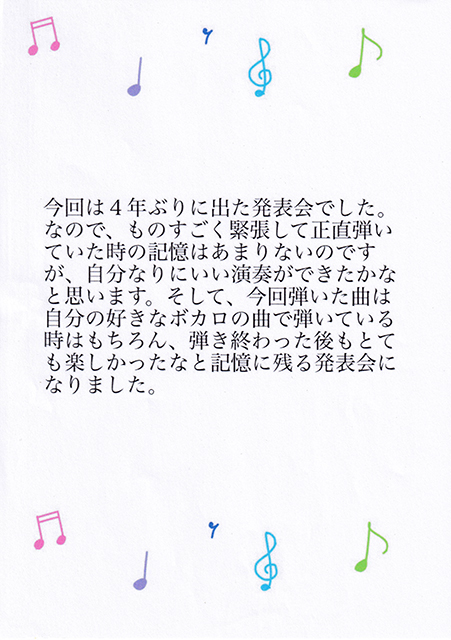 今回は４年ぶりに出た発表会でした。
なので、ものすごく緊張して正直弾い
ていた時の記憶はあまりないのです
が、自分なりにいい演奏ができたかな
と思います。そして、今回弾いた曲は
自分の好きなボカロの曲で弾いている
時はもちろん、弾き終わった後もとて
も楽しかったなと記憶に残る発表会に
なりました。